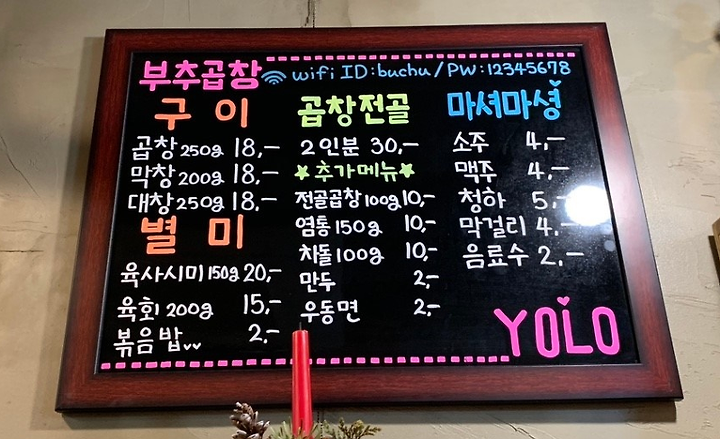 부추곱창 wifi ID:buchu/PW:12345678
구이
곱창 250g 18,-
막창 200g 18,-
대창 250g 18,-
별미
육사시미 150g 20,-
육회 200g 15,-
볶음밥 2,-
곱창전골
2인분 30,-
★추가메뉴★
전골곱창 100g 10,-
염통 150g 10,-
차돌 100g 10,-
만두 2,-
우동면 2,-
마셔마셩
소주 4,-
맥주 4,-
청하 5,-
막걸리 4,-
음료수 2,-
YOLO